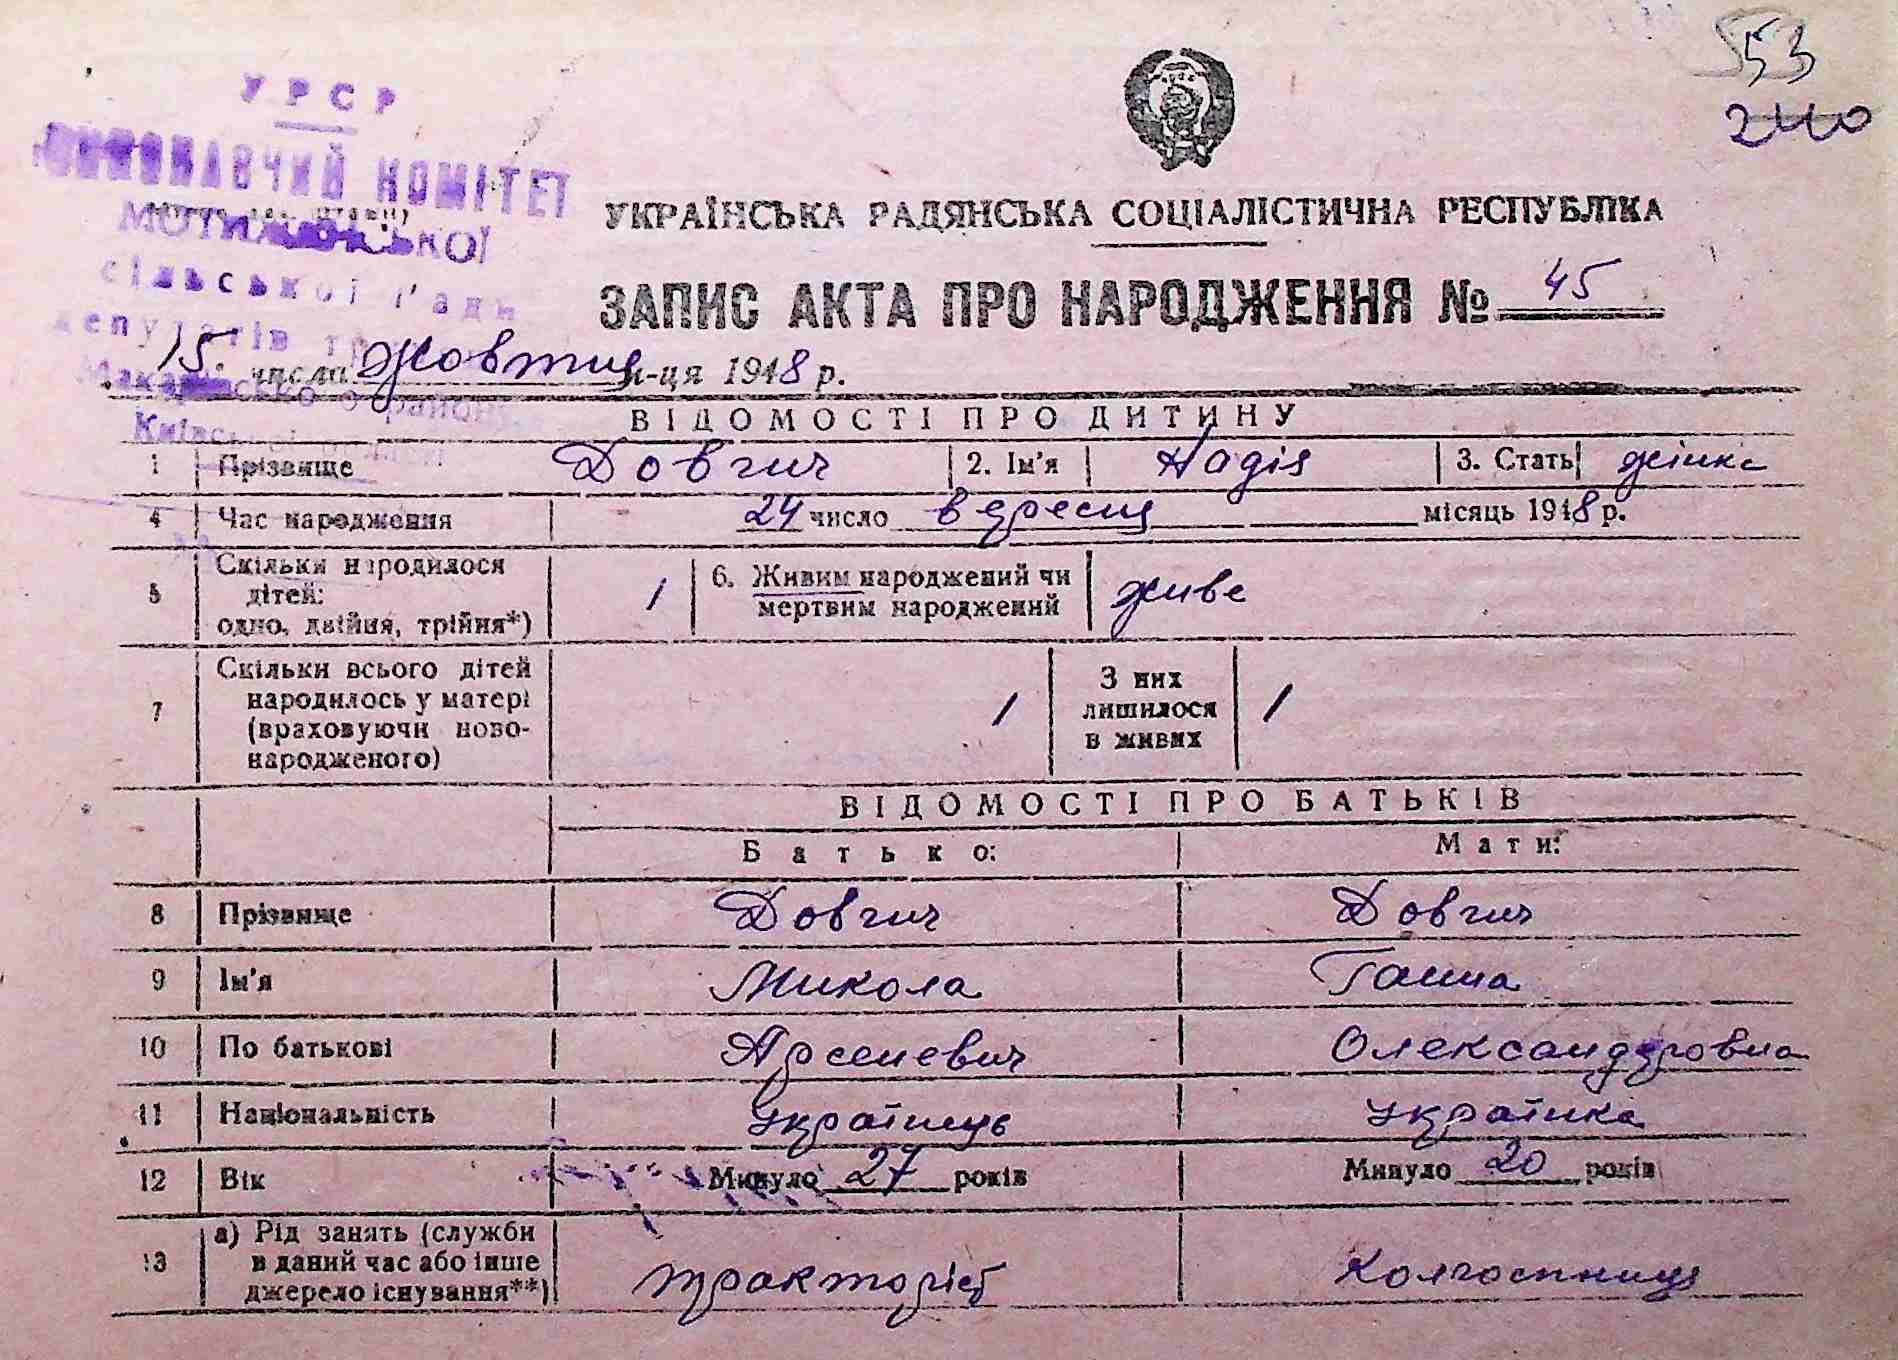 53
2440
УРСР
ВИКОНАВЧИЙ КОМІТЕТ
МОТИЖИНСЬКОЇ
сільської Ради
депутатів
Макарівського району
Київської області
УКРАЇНСЬКА РАДЯНСЬКА СОЦІАЛІСТИЧНА РЕСПУБЛІКА
ЗАПИС АКТА ПРО НАРОДЖЕННЯ № 45
15 числа жовтня м-ця 1948 р.
ВІДОМОСТІ ПРО ДИТИНУ
1 Прізвище Довгич 2. Ім'я Надія 3. Стать жінка
4 Час народження 24 число вересня місяць 1948 р.
5 Скільки народилося дітей: одно, двійня, трійня*) 1 6. Живим народжений чи мертвим народжений живе
7 Скільки всього дітей народилось у матері (враховуючи ново-народженого) 1 З них лишилося в живих 1
ВІДОМОСТІ ПРО БАТЬКІВ
Батько: Мати:
8 Прізвище Довгич Довгич
9 Ім'я Микола Ганна
10 По батькові Арсеневич Олександровна
11 Національність Українець Українка
12 Вік Минуло 27 років Минуло 20 років
13 а) Рід занять (служби в даний час або інше джерело існування**) тракторіст колгоспниця